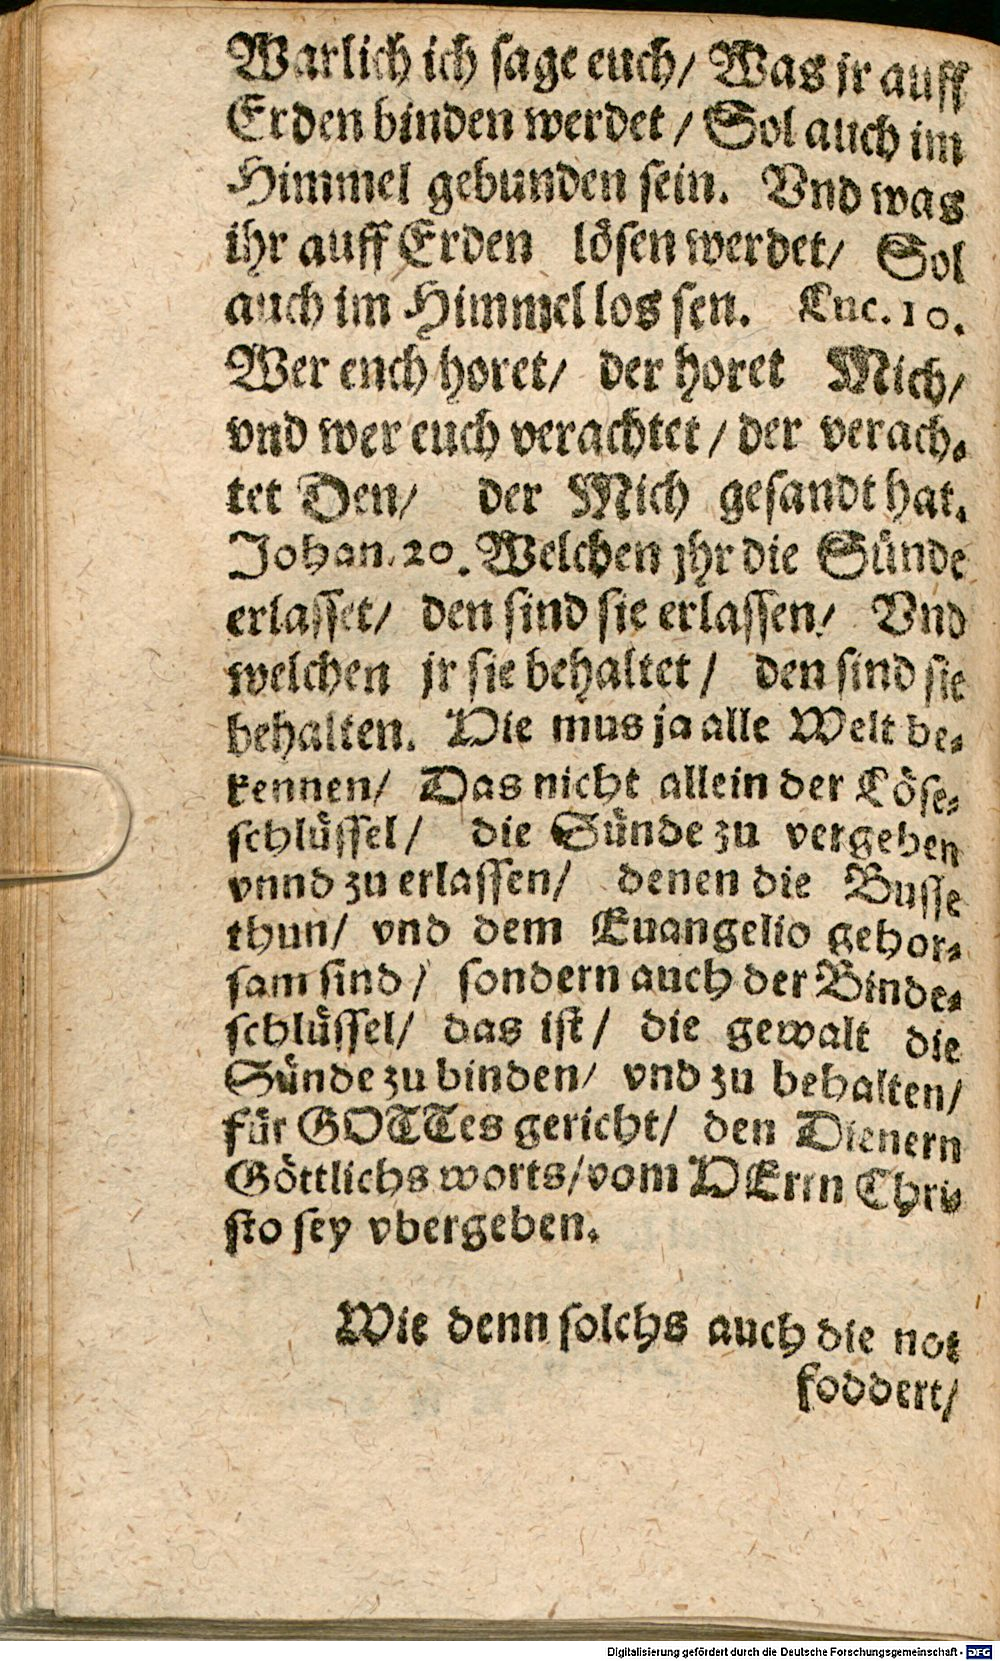 Warlich ich sage euch/ Was jr auff
Erden binden werdet / Sol auch im
Himmel gebunden sein. Vnd was
ihr auff Erden lösen werdet/ Sol
auch im Himmel los sen. Luc. 10.
Wer ench horet/ der horet Mich/
vnd wer euch verachtet / der verach-
tet Den/ der Mich gesandt hat.
Johan. 20. Welchen jhr die Sünde
erlasset/ den sind sie erlassen/ Vnd
welchen jr sie behaltet / den sind sie
behalten. Hie mus ja alle Welt be-
kennen/ Das nicht allein der Löse-
schlüssel / die Sünde zu vergeben
vnnd zu erlassen/ denen die Busse
thun/ vnd dem Euangelio gehor-
sam sind / sondern auch der Binde-
schlüssel/ das ist / die gewalt die
Sünde zu binden/ vnd zu behalten/
für GOTTes gericht/ den Dienern
Göttlichs worts/ vom HErrn Chri-
sto sey vbergeben.
Wie denn solchs auch die not
foddert/
Digitalisierung gefördert durch die Deutsche Forschungsgemeinschaft - DFG